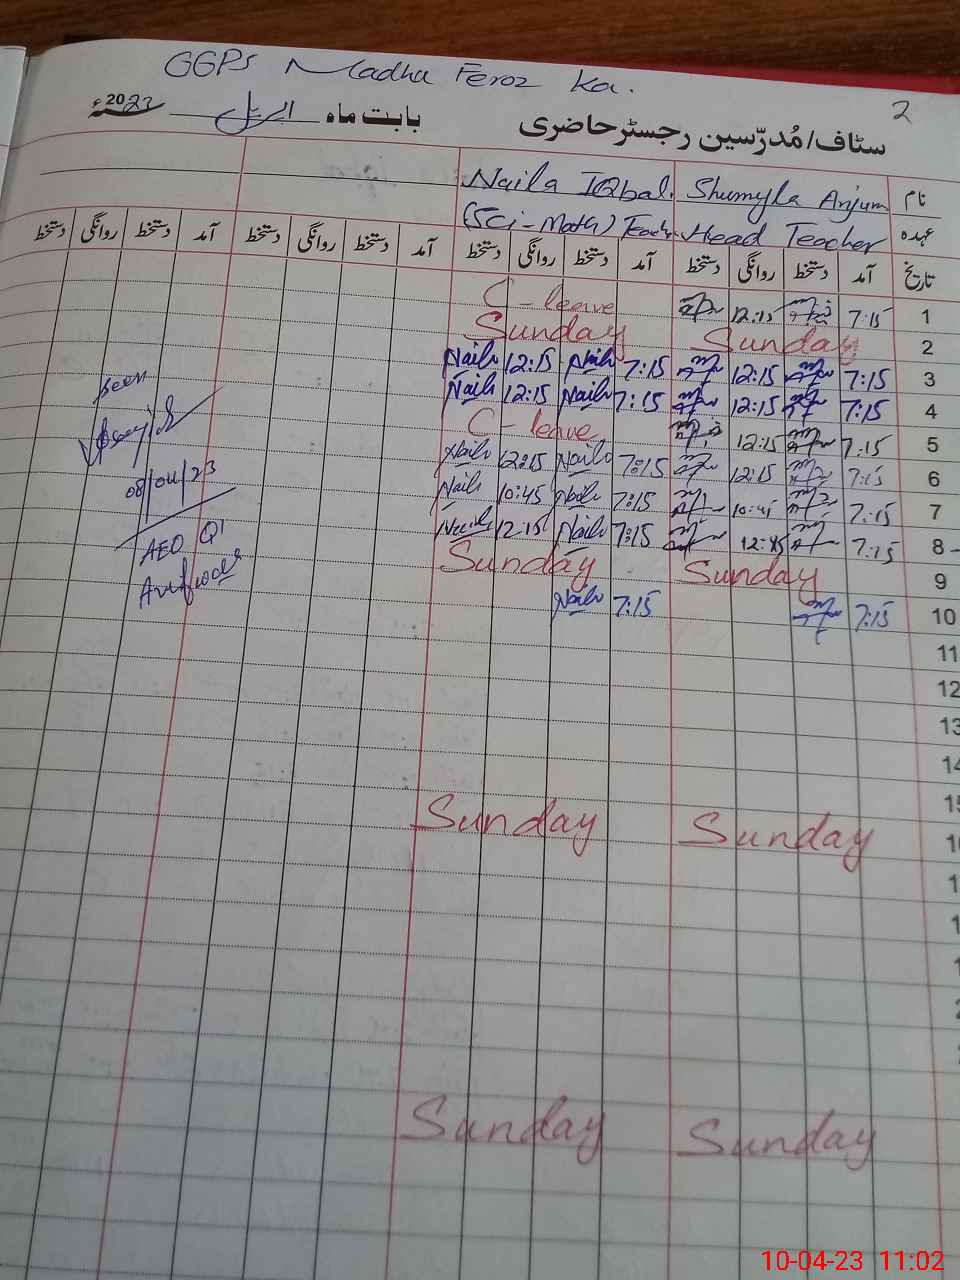 GGPS Madha Feroz Ka.
2
سٹاف/مُدرّسین رجسٹر حاضری بابت ماہ اپریل 2023ء
نام Shumyla Anjum Naila IQbal.
عہدہ Head Teacher (Sci-Math) Teach.
تاریخ آمد دستخط روانگی دستخط آمد دستخط روانگی دستخط آمد دستخط روانگی دستخط آمد دستخط روانگی دستخط
1 7:15 12:15 C-leave
2 Sunday Sunday
3 7:15 12:15 7:15 Naila 12:15 Naila
4 7:15 12:15 7:15 Naila 12:15 Naila
5 7:15 12:15 C-leave
6 7:15 12:15 7:15 Naila 12:15 Naila
7 7:15 10:45 7:15 Naila 10:45 Naila
8 7:15 7:15 Naila 12:15 Naila
9 Sunday Sunday
10 7:15 7:15 Naila
11
12
13
14
15
Sunday Sunday
Sunday Sunday
seen
08/04/23
AEO
10-04-23 11:02